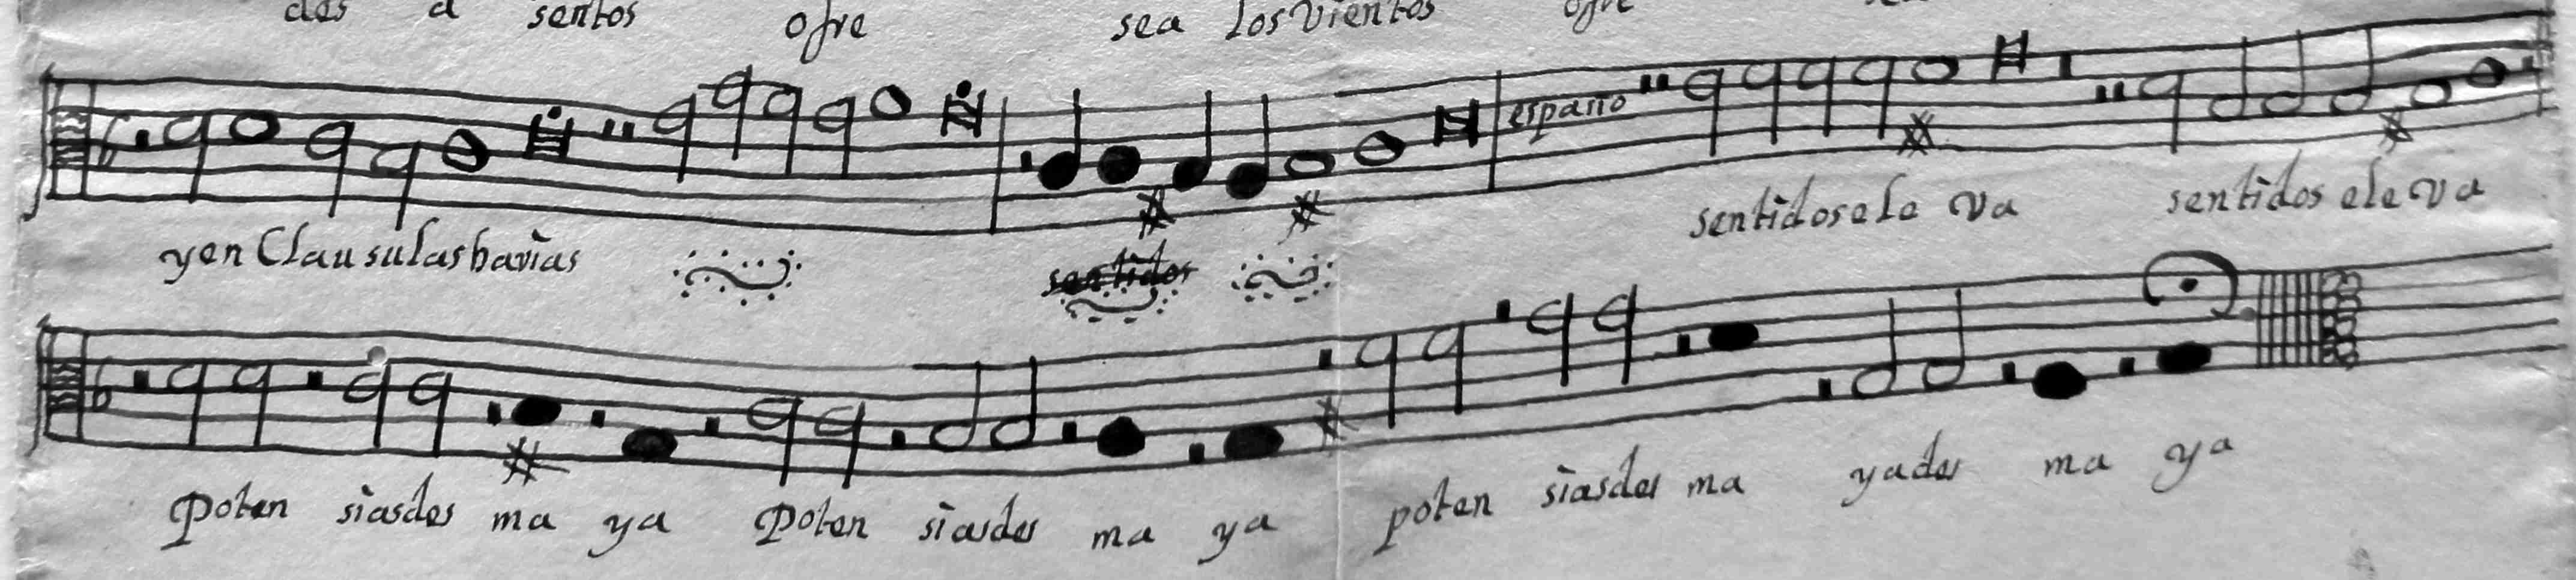 des a sentos ofre sea los vientos ofre
espasio
yen Clausulas bavias sentidos sentidos ele va sentidos ele va
poten siasdes ma ya poten siasdes ma ya poten siasdes ma yades ma ya